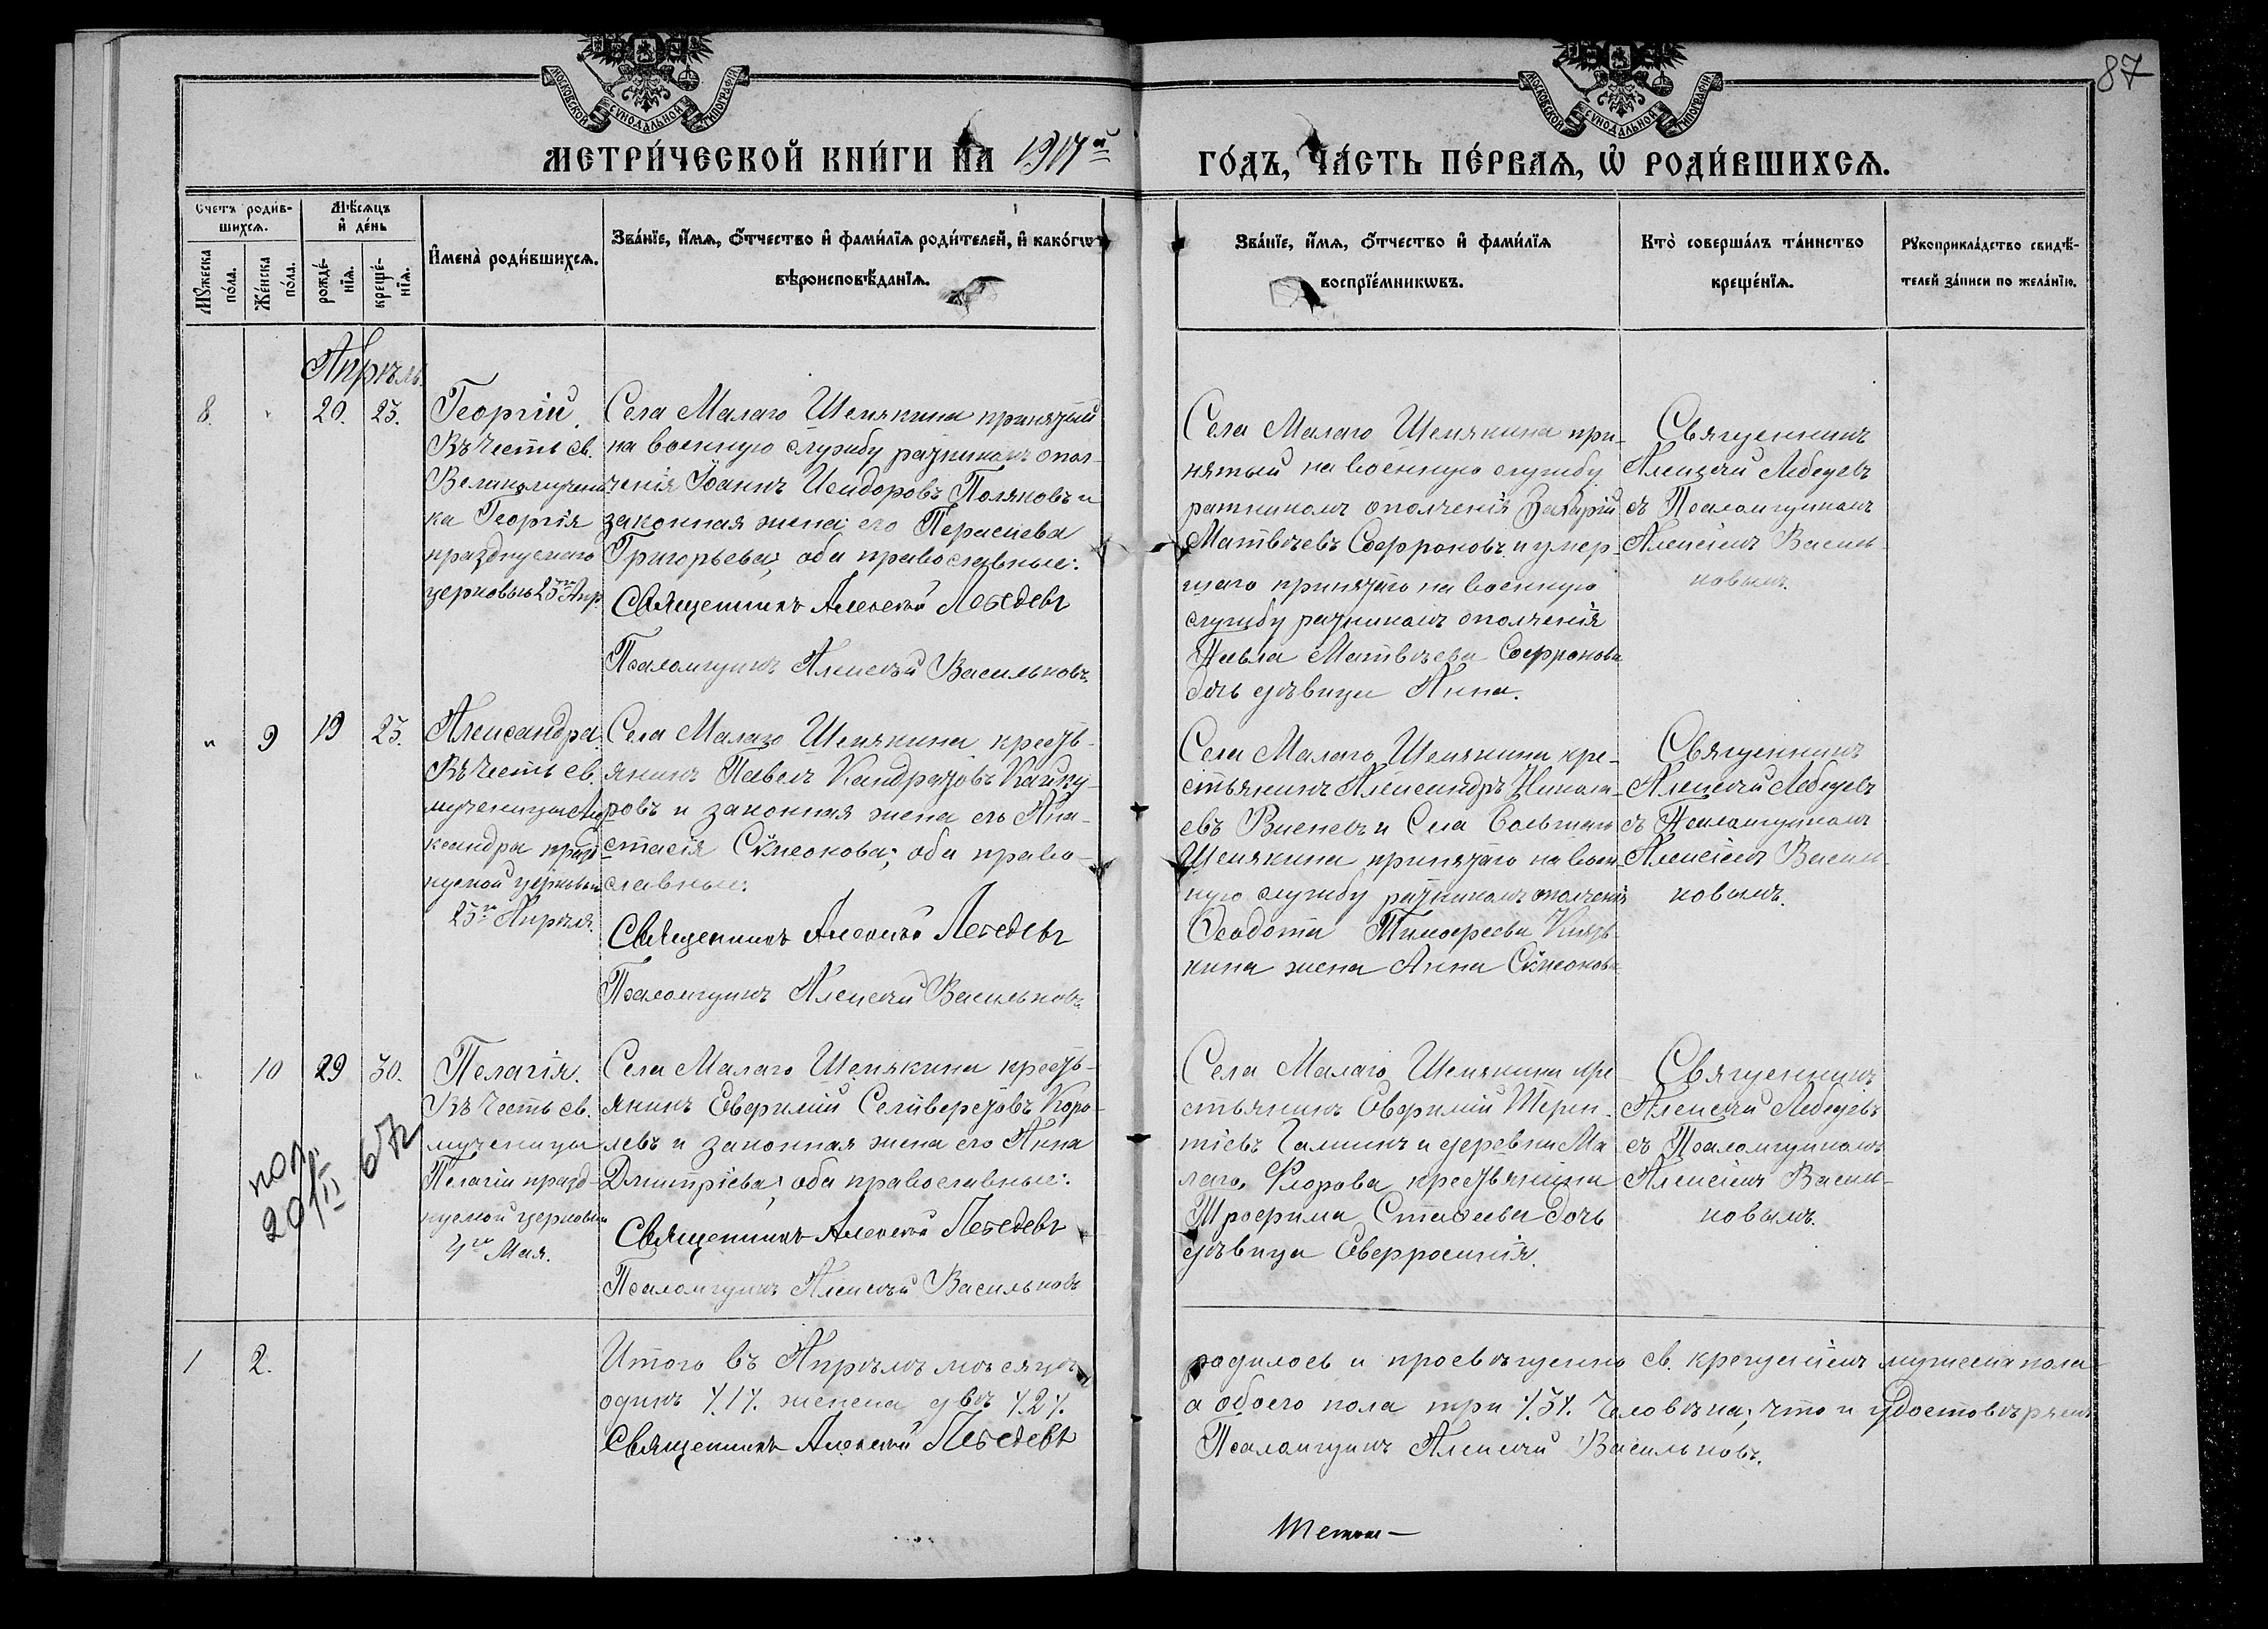 87
МОСКОВСКОЙ СУНОДАЛЬНОЙ ТИПОГРАФІИ
МОСКОВСКОЙ СУНОДАЛЬНОЙ ТИПОГРАФІИ
МЕТРИ́ЧЕСКОЙ КНИ́ГИ НА 1917й
ГО́ДЪ, ЧА́СТЬ ПЕ́РВАѦ, Ѡ РОДИ́ВШИХСѦ.
Счетъ роди́в-
шихсѧ.
Мѣ́сѧцъ
и҆ де́нь
Мꙋжеска
по́ла.
Же́нска
по́ла.
рожде́-
нїѧ.
креще́-
нїѧ.
И҆мена̀ роди́вшихсѧ.
Зва́нїе, и҆́мѧ, ѻ҆́тчество и҆ фами́лїѧ роди́телей, и҆ како́гѡ
вѣроисповѣ́данїѧ.
Зва́нїе, и҆́мѧ, ѻ҆́тчество и҆ фами́лїѧ
воспрїе́мникѡвъ.
Кто̀ соверша́лъ та́инство
креще́нїѧ.
Рꙋкоприкла́дство свидѣ́-
телей за́писи по жела́нїю.
Апрѣль.
8.
20.
23.
Георгій.
Въ честь св.
Великомучени
ка Георгія
празднуемаго
церковью 23го Апр.
Села Малаго Шемякина принятый
на военную службу ратникомъ опол-
ченія Іоаннъ Исидоровъ Поляковъ и
законная жена его Параскева
Григорьева; оба православные:
Священникъ Алексѣй Лебедевъ
Псаломщикъ Алексѣй Васильковъ.
Села Малаго Шемякина при-
нятый на военную службу
ратникомъ ополченія Захарій
Матвѣевъ Софроновъ и умер-
шаго принятаго на военную
службу ратникомъ ополченія
Павла Матвѣева Софронова
дочь дѣвица Анна.
Священникъ
Алексѣй Лебедевъ
съ Псаломщикомъ
Алексіемъ Василь-
ковымъ.
"
9
19
23.
Александра
Въ честь св.
мученицы Але
ксандры празд
нуемой церковью
23го Апрѣля.
Села Малаго Шемякина кресть-
янинъ Павелъ Кандратовъ Кайку-
ровъ и законная жена его Ана-
стасія Сѵмеонова; оба право-
славные:
Священникъ Алексѣй Лебедевъ
Псаломщикъ Алексѣй Васильковъ.
Села Малаго Шемякина кре-
стьянинъ Александръ Никола-
евъ и Села Большаго
Шемякина принятаго на воен-
ную службу ратникомъ ополченія
Ѳеодота Тимофеева Князь-
кина жена Анна Сѵмеонова
Священникъ
Алексѣй Лебедевъ
съ Псаломщикомъ
Алексіемъ Василь-
ковымъ.
10
29
30.
Пелагія.
Въ честь св.
мученицы
Пелагіи празд-
нуемой церковью
4го Мая.
Села Малаго Шемякина кресть-
янинъ Евфимій Селиверстовъ Коро-
левъ и законная жена его Анна
Димитріева; оба православные:
Священникъ Алексѣй Лебедевъ
Псаломщикъ Алексѣй Васильковъ
Села Малаго Шемякина кре-
стьянинъ Евфимій Терен-
тіевъ и деревни Ма
лаго Флорова крестьянина
Трофима дочь
дѣвица Евфросинія.
Священникъ
Алексѣй Лебедевъ
съ Псаломщикомъ
Алексіемъ Василь-
ковымъ.
20/II
1
2.
Итого въ Апрѣлѣ мѣсяцѣ родилось и просвѣщено св. крещеніемъ мужеска пола
одинъ /.1/. женска двѣ /.2/. а обоего пола три /.3/. человѣка; что и удостовѣряемъ
Священникъ Алексѣй Лебедевъ
Псаломщикъ Алексѣй Васильковъ.